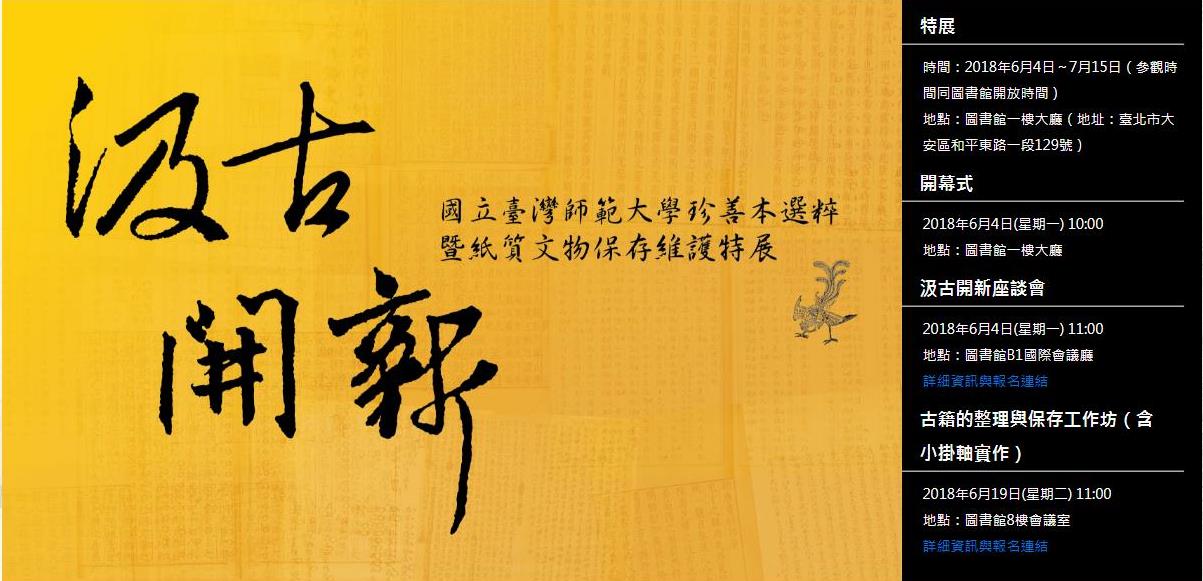 汲古
開新
國立臺灣師範大學珍善本選粹
暨紙質文物保存維護特展
特展
時間：2018年6月4日～7月15日（參觀時
間同圖書館開放時間）
地點：圖書館一樓大廳（地址：臺北市大
安區和平東路一段129號）
開幕式
2018年6月4日(星期一) 10:00
地點：圖書館一樓大廳
汲古開新座談會
2018年6月4日(星期一) 11:00
地點：圖書館B1國際會議廳
詳細資訊與報名連結
古籍的整理與保存工作坊（含
小掛軸實作）
2018年6月19日(星期二) 11:00
地點：圖書館8樓會議室
詳細資訊與報名連結